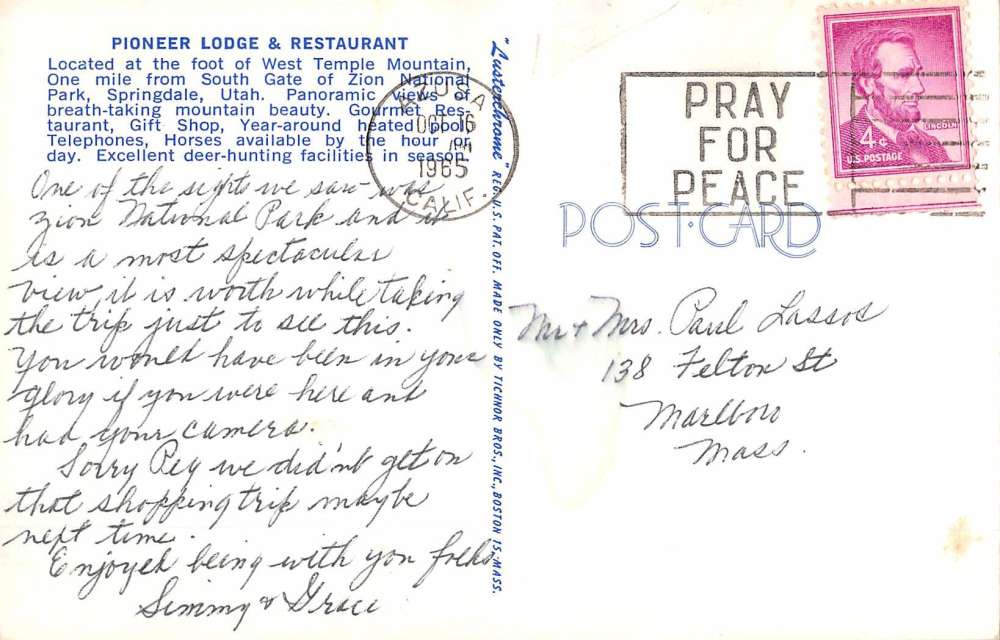 PIONEER LODGE & RESTAURANT
Located at the foot of West Temple Mountain,
One mile from South Gate of Zion National
Park, Springdale, Utah. Panoramic views of
breath-taking mountain beauty. Gourmet Res-
taurant, Gift Shop, Year-around heated pool,
Telephones, Horses available by the hour or
day. Excellent deer-hunting facilities in season.
One of the sights we saw was
Zion National Park and it
is a most spectacular
view, it is worth while taking
the trip just to see this.
You would have been in your
glory if you were here and
had your camera.
Sorry Peg we didn't get on
that shopping trip maybe
next time.
Enjoyed being with you folks
Simmy & Grace
"Lusterchrome" REG. U. S. PAT. OFF. MADE ONLY BY TICHNOR BROS., INC., BOSTON 15, MASS.
AZUSA
OCT 16
1965
CALIF.
PRAY
FOR
PEACE
LINCOLN
4¢
U.S. POSTAGE
POST CARD
Mr + Mrs. Paul Lassos
138 Felton St
Marlboro
Mass.